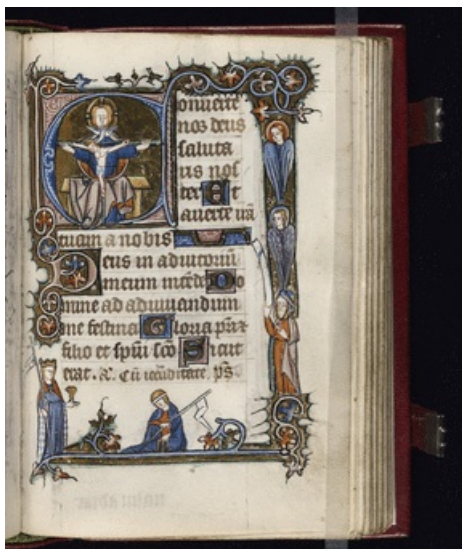 Conuerte
nos deus
saluta
ris nos
ter Et
auerte irã
tuam a nobis
Deus in adiutoriũ
meum intẽde Do
mine ad adiuuandum
me festina Gloria pr̃i
filio et spũi sc̃o Sicut
erat. &. Cũ p̃s